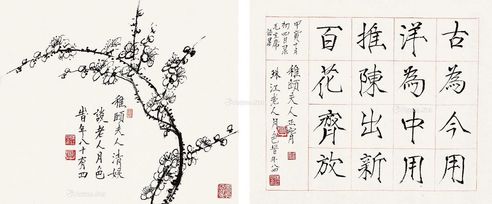 稚頤夫人清娱
談老人月色
昔年八十有四
古為今用
洋為中用
推陳出新
百花齊放
甲寅十月
初四日录
毛主席
語畧
稚頤夫人正腕
珠江老人月色昔年八四